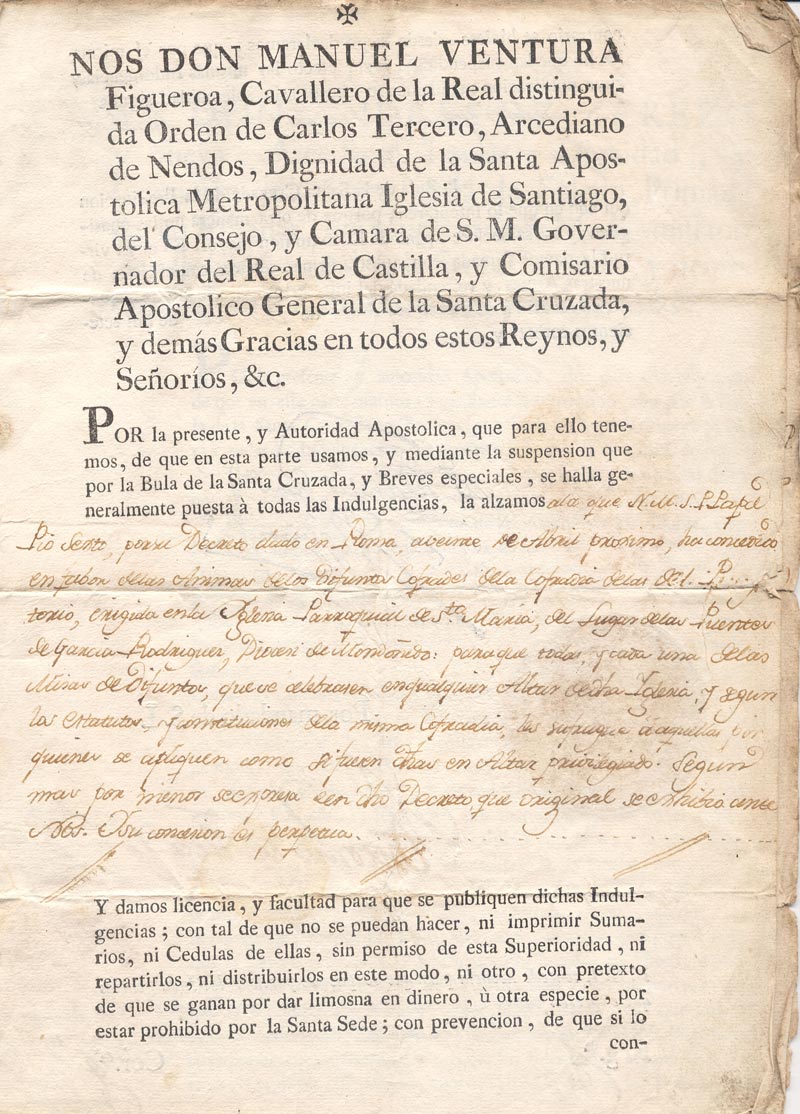 NOS DON MANUEL VENTURA
Figueroa, Cavallero de la Real distingui-
da Orden de Carlos Tercero, Arcediano
de Nendos, Dignidad de la Santa Apos-
tolica Metropolitana Iglesia de Santiago,
del Consejo, y Camara de S. M. Gover-
nador del Real de Castilla, y Comisario
Apostolico General de la Santa Cruzada,
y demás Gracias en todos estos Reynos, y
Señoríos, &c.
POR la presente, y Autoridad Apostolica, que para ello tene-
mos, de que en esta parte usamos, y mediante la suspension que
por la Bula de la Santa Cruzada, y Breves especiales, se halla ge-
neralmente puesta à todas las Indulgencias, la alzamos a la que N. M. S. P. Papa
Pio Sexto, por su Decreto dado en Roma, a veinte de Abril proximo, ha concedido
en fabor de las Animas de los Difuntos Cofrades de la Cofradia de las del P...
torio, erigida en la Iglesia Parroquial de Sta. Maria, del Lugar de las Puentes
de Garcia Rodriguez, Diocesi de Mondoñedo: para que todas, y cada una de las
Misas de Difuntos, que se celebrasen en qualquier Altar de dha Iglesia, y segun
los estatutos, y constituciones de la misma Cofradia, les sufrague à aquellas por
quienes se apliquen como si fuesen dhas en Altar privilegiado. Segun
mas por menor se expresa en dho Decreto, que original se exhibio ante
Nos. Y su concesion es perpetua.
Y damos licencia, y facultad para que se publiquen dichas Indul-
gencias; con tal de que no se puedan hacer, ni imprimir Suma-
rios, ni Cedulas de ellas, sin permiso de esta Superioridad, ni
repartirlos, ni distribuirlos en este modo, ni otro, con pretexto
de que se ganan por dar limosna en dinero, ù otra especie, por
estar prohibido por la Santa Sede; con prevencion, de que si lo
con-